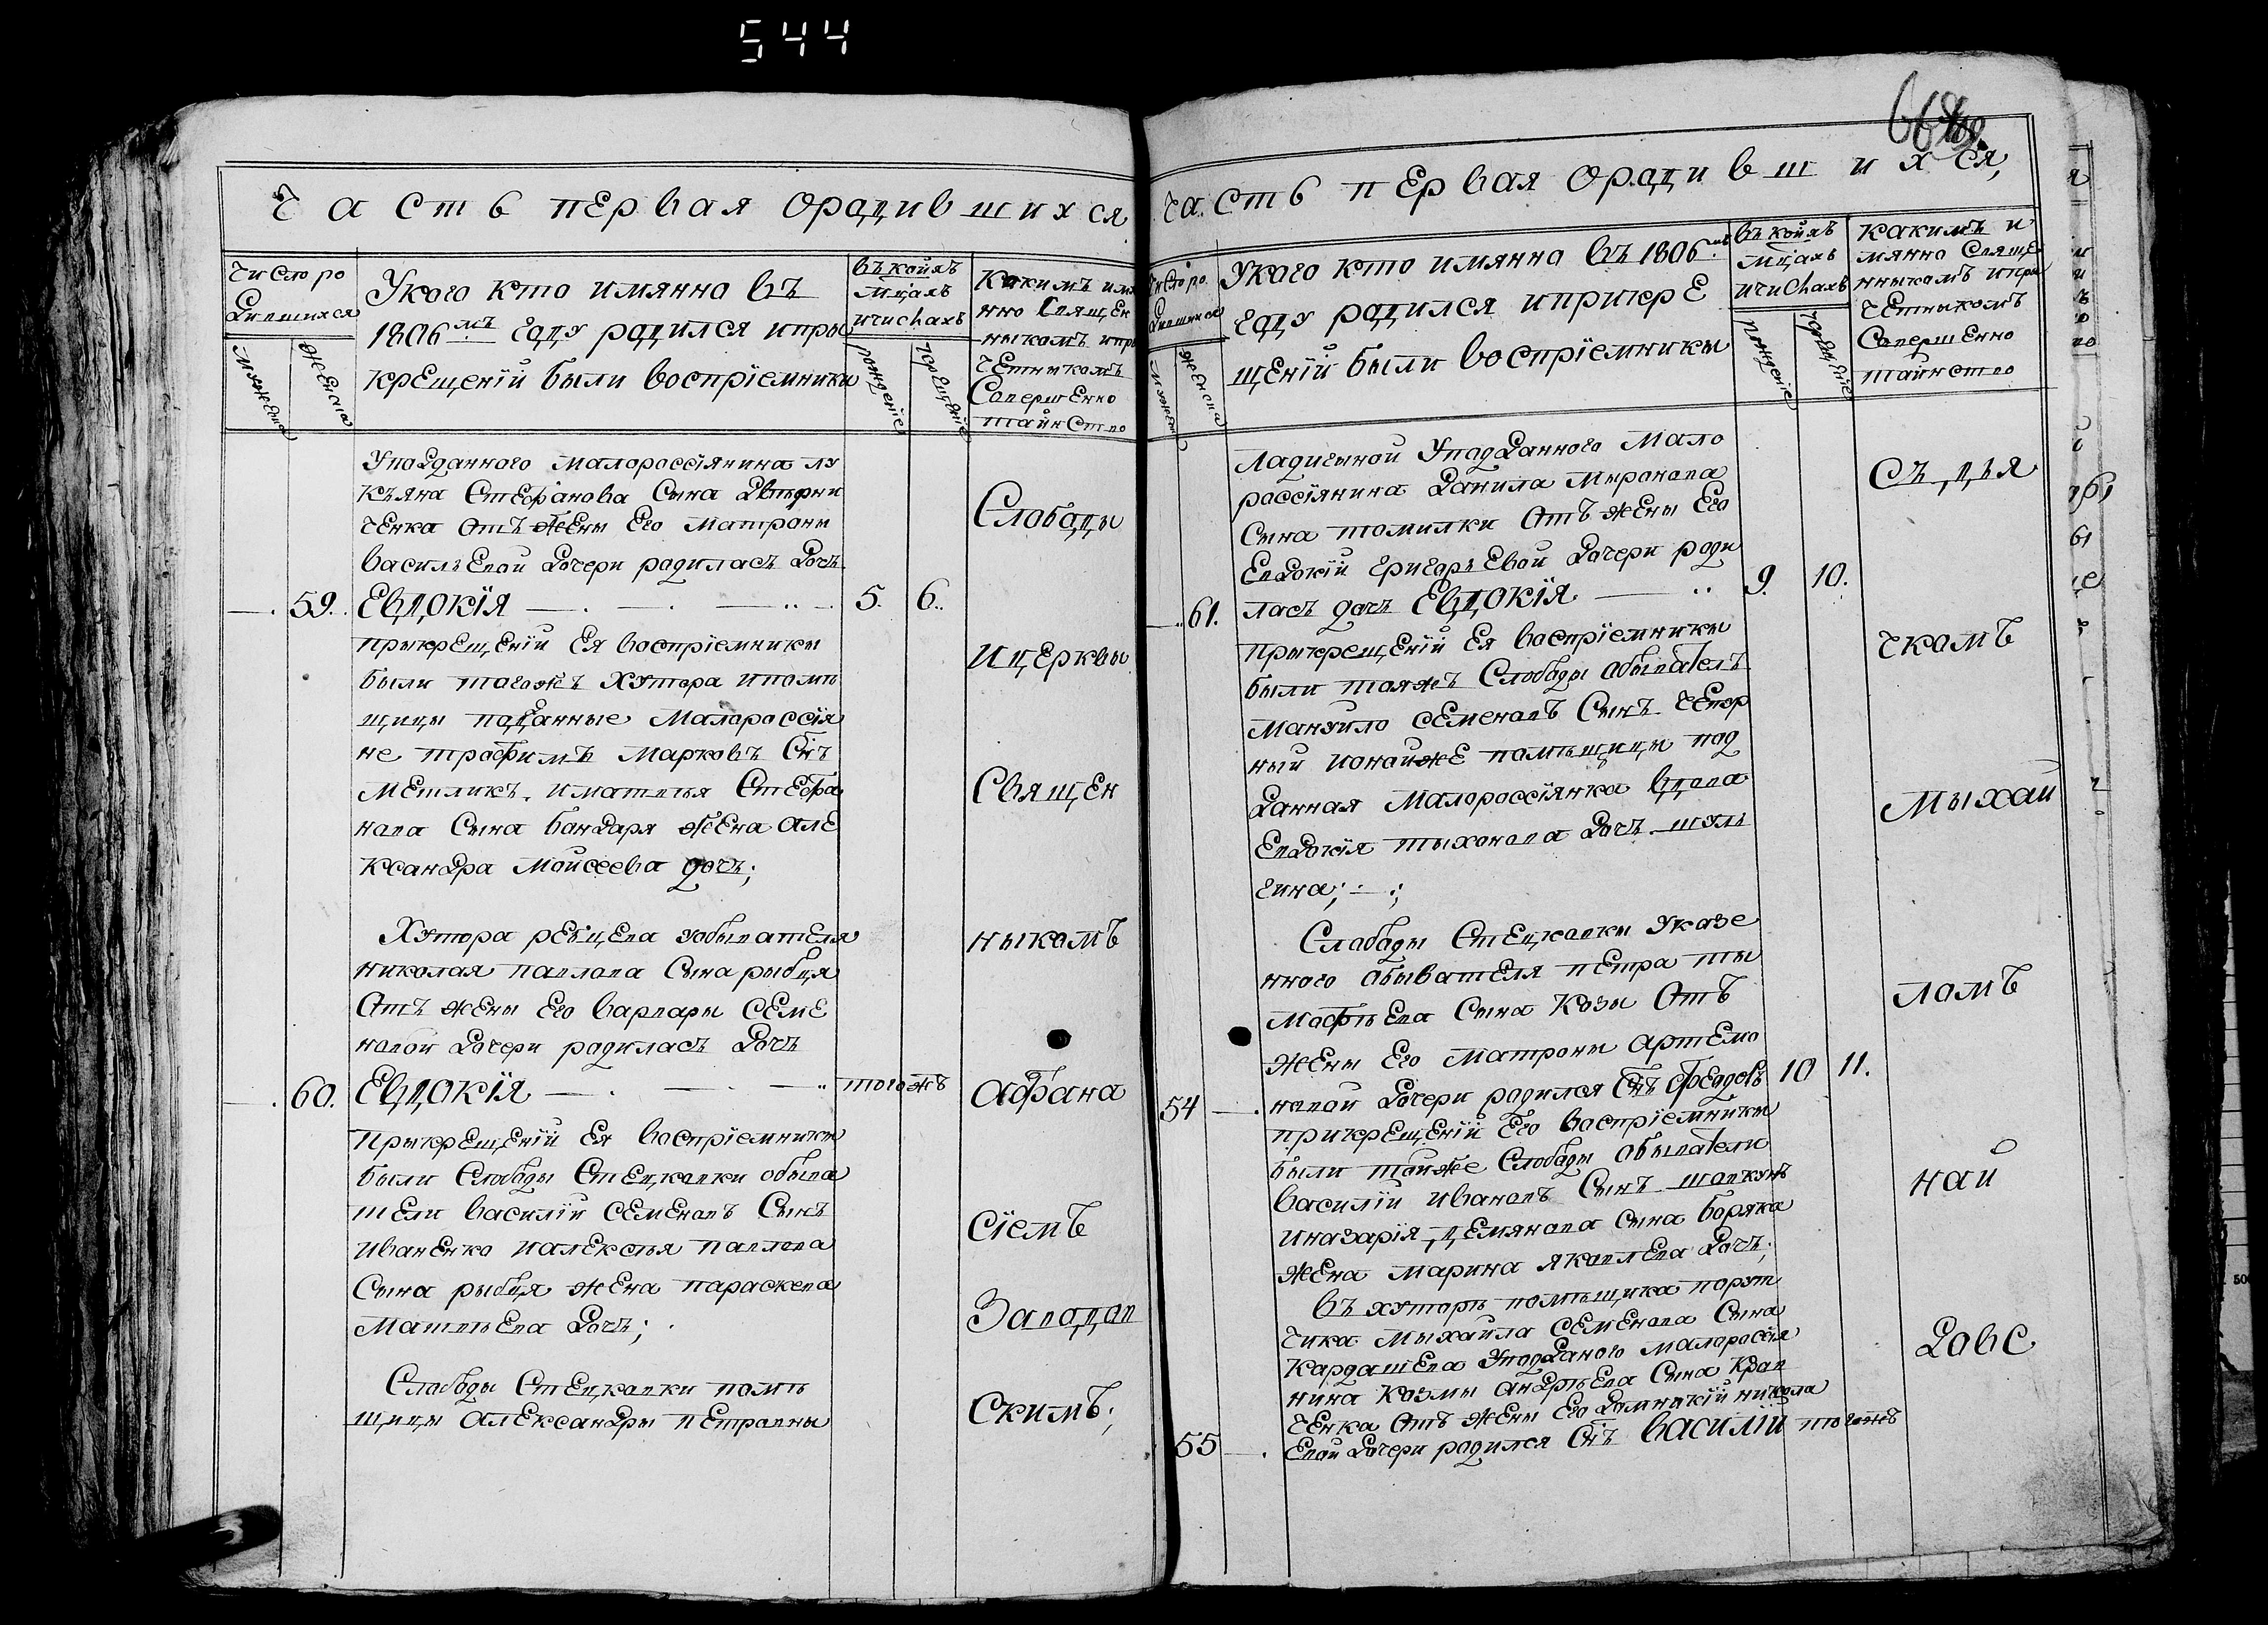 544
Часть первая ородившихся
Число ро
дившихся
мужеска
женска
Укого кто имянно въ
1806мъ году родился ипры
крещеніи были воспріемники
въ коихъ
мцахъ
ичислахъ
рожденіе
крещеніе
Какимъ имя
нно Священ
ныкомъ ипры
четныкомъ
Совершенно
таинство
Уподданного малороссіянина лу
кьяна Стефанова Сына
ченка Отъ жены Его матроны
василъевой дочери родиласъ дочъ
59. Евдокія 5. 6.
прыкрещеніи Ея воспріемникы
были тогожъ хутора ипомѣ
щицы подданные Малороссія
не трофимъ Марковъ Снъ
Метликъ, иматвѣя Стефа
нова Сына бандаря жена але
ксандра Моисеева дочъ;
Хутора рѣбцева уобывателя
николая павлова Сына рыбця
Отъ жены Его варвары семе
новой дочери родиласъ дочъ
60. Евдокія тогожъ
прыкрещеніи Ея воспріемникы
были Слободы Стецковки обыва
тели василій семеновъ Сынъ
иваненко иалексѣя павлова
Сына рыбця жена параскева
Матвѣева дочъ;
Слободы Стецковки помѣ
щицы александры петровны
Слободы
ицерквы
Священ
ныкомъ
Афана
сіемъ
Заводов
скимъ;
Часть первая ородившихся,
Число ро
дившихся
мужеска
женска
Укого кто имянно въ 1806мъ
году родился иприкре
щеніи были воспріемникы
въ коихъ
мцахъ
ичислахъ
рожденіе
крещеніе
какимъ и
мянно Свяще
нныкомъ ипры
четныкомъ
Совершенно
таинство
Ладигыной Уподданного Мало
россіянина данила миронова
Сына томилки Отъ жены Его
Евдокіи григоръевой дочери роди
61. ласъ дочъ Евдокія 9. 10.
прыкрещеніи Ея воспріемникы
были тояжъ Слободы обыватель
мануило семеновъ Сынъ
ный ионойже помѣщицы под
данная малороссіянка вдова
Евдокія тыхонова дочъ
гина;
Слабоды Стецковки Указе
нного обывателя петра ты
мофѣева Сына Козы Отъ
жены Его матроны артемо
54 новой дочери родился Снъ Феодоръ 10 11.
прикрещеніи Его воспріемникы
были тойже Слободы обыватели
василій ивановъ Сынъ шовкунъ
иназарія демянова Сына боряка
жена марина яковлева дочъ;
въ хуторѣ помѣщика поруч
чика мыхайла семенова Сына
Кардашева Уподданого малоросія
нина козмы андрѣева Сына Крав
ченка Отъ жены Его домникіи никола
55 Евой дочери родился Снъ Василій тогожъ
съ дья
чкомъ
мыхай
ломъ
най
довс